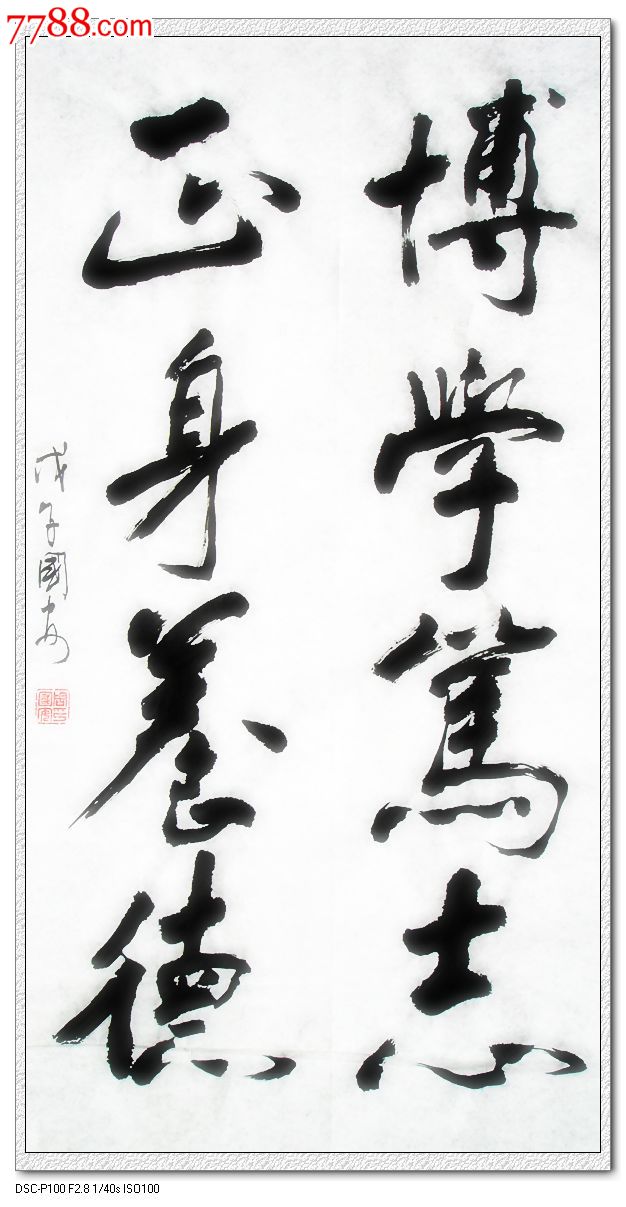 7788.com
博學篤志
正身養德
戊子國安
DSC-P100 F2.8 1/40s ISO100